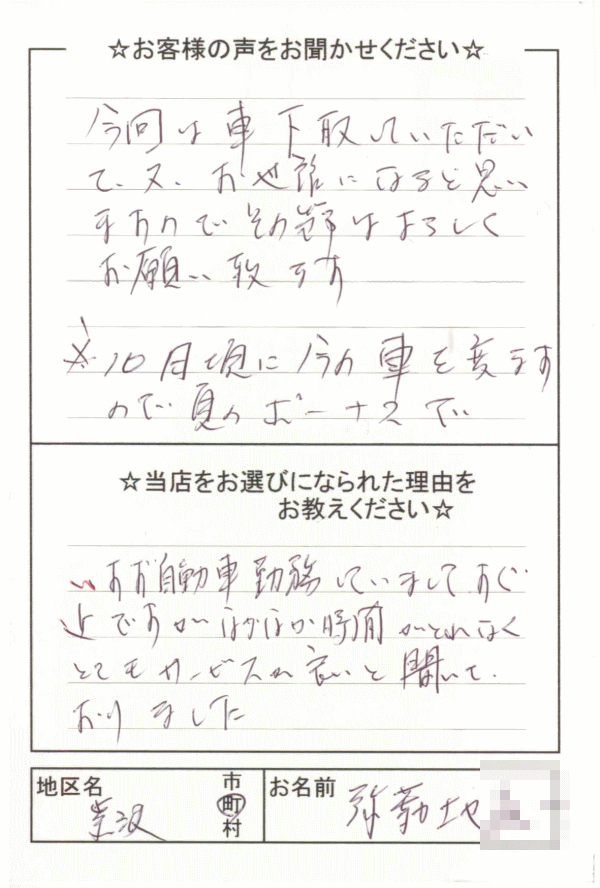 ☆お客様の声をお聞かせください☆
今回は車下取していただい
て、又、お世話になると思い
ますので その節はよろしく
お願い致ます
※10月頃に今の車を変ます
ので夏のボーナスで
☆当店をお選びになられた理由を
お教えください☆
自動車勤務していまして すぐ
近ですがなかなか時間がとれなく
とてもサービスが良いと聞いて
おりました
地区名 市町村 お名前
弥勒地